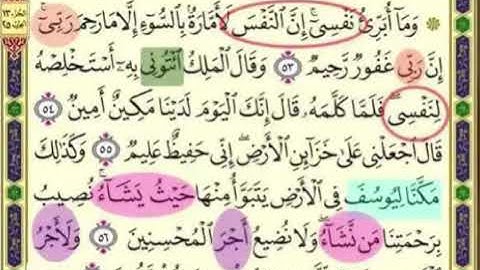 وَمَآ أُبَرِّئُ نَفْسِىٓ ۚ إِنَّ ٱلنَّفْسَ لَأَمَّارَةٌۢ بِٱلسُّوٓءِ إِلَّا مَا رَحِمَ رَبِّىٓ ۚ
إِنَّ رَبِّى غَفُورٌ رَّحِيمٌ ٥٣ وَقَالَ ٱلْمَلِكُ ٱئْتُونِى بِهِۦٓ أَسْتَخْلِصْهُ
لِنَفْسِى ۖ فَلَمَّا كَلَّمَهُۥ قَالَ إِنَّكَ ٱلْيَوْمَ لَدَيْنَا مَكِينٌ أَمِينٌ ٥٤
قَالَ ٱجْعَلْنِى عَلَىٰ خَزَآئِنِ ٱلْأَرْضِ ۖ إِنِّى حَفِيظٌ عَلِيمٌ ٥٥ وَكَذَٰلِكَ
مَكَّنَّا لِيُوسُفَ فِى ٱلْأَرْضِ يَتَبَوَّأُ مِنْهَا حَيْثُ يَشَآءُ ۚ نُصِيبُ
بِرَحْمَتِنَا مَن نَّشَآءُ ۖ وَلَا نُضِيعُ أَجْرَ ٱلْمُحْسِنِينَ ٥٦ وَلَأَجْرُ